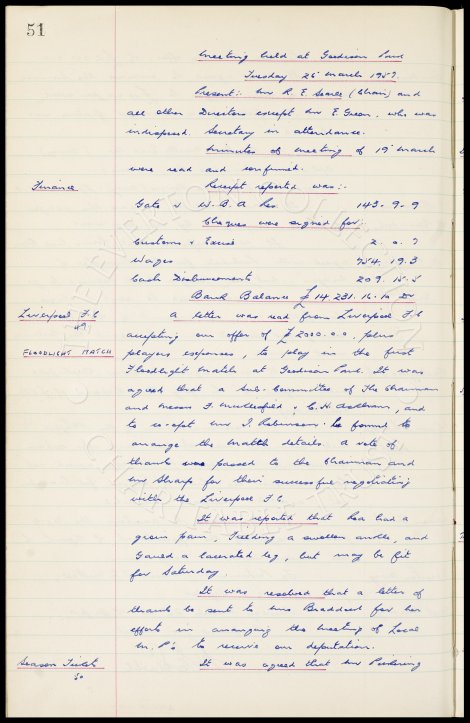 51
Meeting held at Goodison Park
Tuesday 26th March 1957
Present:- Mr R. E. Searle (Chair) and
all other Directors except Mr E. Green, who was
indisposed. Secretary in attendance.
Minutes of meeting of 19th March
were read and confirmed.
Finance
Receipt reported was:-
Gate v W.B.A Res 143. 9. 9
Cheques were signed for:
Customs & Excise 2. 0. 7
Wages 754. 19. 3
Cash Disbursements 209. 15. 5
Bank Balance £14,231. 16. 10 Dr
Liverpool F.C
A letter was read from Liverpool F.C
accepting our offer of £2000. 0. 0. plus
FLOODLIGHT MATCH
players expenses, to play in the first
Floodlight match at Goodison Park. It was
agreed that a sub-Committee of The Chairman
and Messrs F. Micklesfield, C. H. Askham, and
to co-opt Mr T. Robinson be formed to
arrange the match details. A vote of
thanks was passed to the Chairman and
Mr Sharp for their successful negotiating
with the Liverpool F.C.
It was reported that Rea had a
groin pain, Fielding a swollen ankle, and
Gauld a lacerated leg, but may be fit
for Saturday.
It was resolved that a letter of
thanks be sent to Mrs Braddock for her
efforts in arranging the meeting of Local
M.P's to receive our deputation.
Season Ticket
It was agreed that Mr Pickering